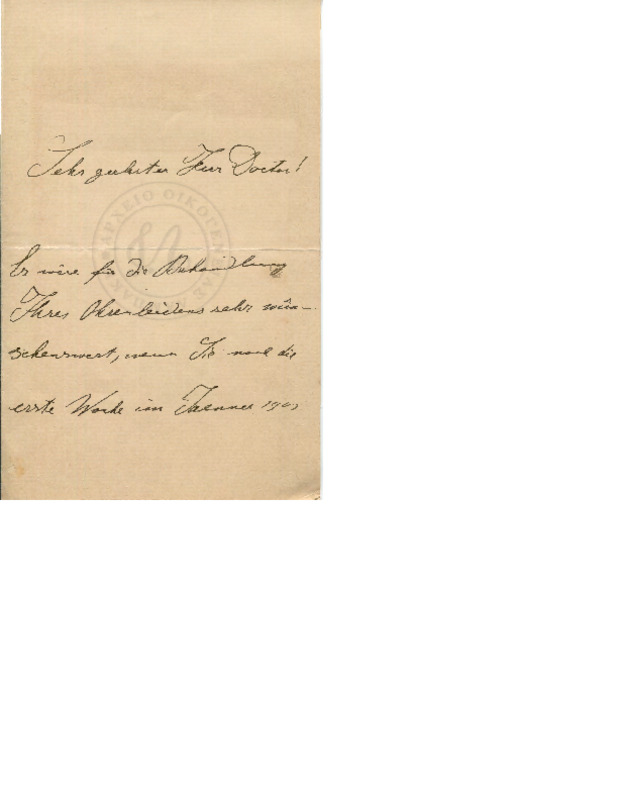 Sehr geehrter Herr Doctor!
ΑΡΧΕΙΟ ΟΙΚΟΓΕΝ
Es wäre für die Behandlung
Ihres Ohrenleidens sehr wün-
schenswert, wenn Sie noch die
erste Woche im Jaenner